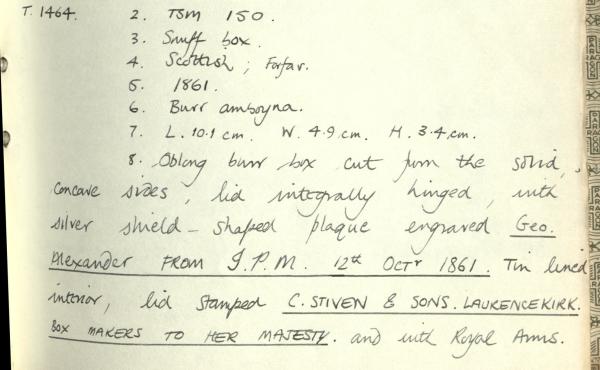 T. 1464. 2. TSM 150.
3. Snuff box.
4. Scottish; Forfar.
5. 1861.
6. Burr amboyna.
7. L. 10.1 cm. W. 4.9 cm. H. 3.4 cm.
8. Oblong burr box cut from the solid,
concave sides, lid integrally hinged, with
silver shield-shaped plaque engraved Geo.
Alexander FROM J.P.M. 12th OCTr 1861. Tin lined
interior, lid stamped C. STIVEN & SONS. LAURENCEKIRK.
BOX MAKERS TO HER MAJESTY. and with Royal Arms.
PARAGON
PARAGON
PARAGON